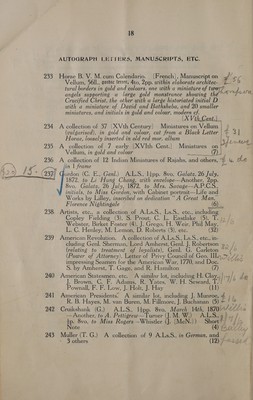 18
AUTOGRAPH LETTERS, MANUSCRIPTS, ETC.
233 Horæ B. V. M. cum Calendario. (French), Manuscript on
Vellum, 56ll., gothic letter, 4to, 2pp. within elaborate architec-
tural borders in gold and colours, one with a miniature of two
angels supporting a large gold monstrance showing the
Crucified Christ, the other with a large historiated initial D
with a miniature of David and Bathsheba, and 20 smaller
miniatures, and initials in gold and colour, modern cf.
(XVth Cent.)
234 A collection of 37 (XVth Century) Miniatures on Vellum
(refurbished), in gold and colour, cut from a Black Letter
Horae, loosely inserted in old red mor. album
235 A collection of 7 early (XVth Cent.) Miniatures on
Vellum, in gold and colour (7)
236 A collection of 12 Indian Miniatures of Rajahs, and others,
in 1 frame
237 Gordon (C. E., Genl.) A.L.S., 1pp. 8vo, Galatz, 26 July,
1872, to Li Hung Chang, with envelope—Another, 2pp.
8vo, Galatz, 26 July, 1872, to Mrs. Savage—A.P.C.S.
initials, to Miss Gordon, with Cabinet portrait—Life and
Works by Lilley, inscribed on dedication "A Great Man.
Florence Nightingale (6)
238 Artists, etc., a collection of A.Ls.S., Ls.S., etc., including
Copley Fielding (3), S. Prout, C. L. Eastlake (5), T.
Webster, Birket Foster (8), J. Grego, H. Weir, Phil May,
L. C. Henley, M. Loudan, D. Roberts (5), etc. (32)
239 American Revolution. A collection of A.Ls.S., Ls.S., etc., in-
cluding Genl. Sherman, Lord Amherst, Genl. J. Robertson
(relating to treatment of loyalists), Genl. G. Carleton
(Power of Attorney), Letter of Privy Council of Geo. III.,
impressing Seamen for the American War, 1770, and Doc.
S. by Amherst, T. Gage, and R. Hamilton (7)
240 American Statesmen, etc. A similar lot, including H. Clay,
J. Brown, C. F. Adams, R. Yates, W. H. Seward, T.
Powell, F. F. Low, J. Holt, J. Hay (11)
241 American Presidents. A similar lot, including J. Munroe,
R. B. Hayes, M. van Buren, M. Fillmore, J. Buchanan (5)
242 Cruikshank (G.) A.L.S., 1pp. 8vo, March 14th, 1870
—Another, to A. Pettigrew—Turner (J. M. W.) A.L.S.,
1p. 8vo, to Miss Rogers—Whistler (J. [McN.]) Short
Note (4)
243 Müller (T. G.) A collection of 9 A.Ls.S., in German, and
3 others (12)